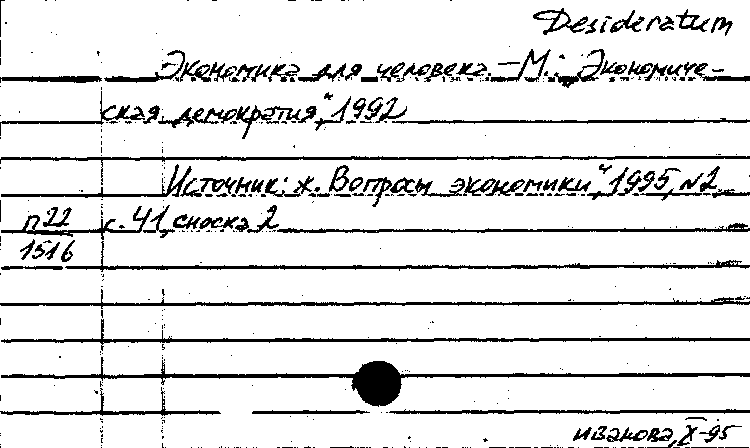 Desideratum
Экономика для человека. – М.: „Экономиче-
ская демократия“, 1992
Источник: ж. Вопросы экономики“, 1995, N2,
п22 с. 41, сноска 2
1516
Иванова, X-95